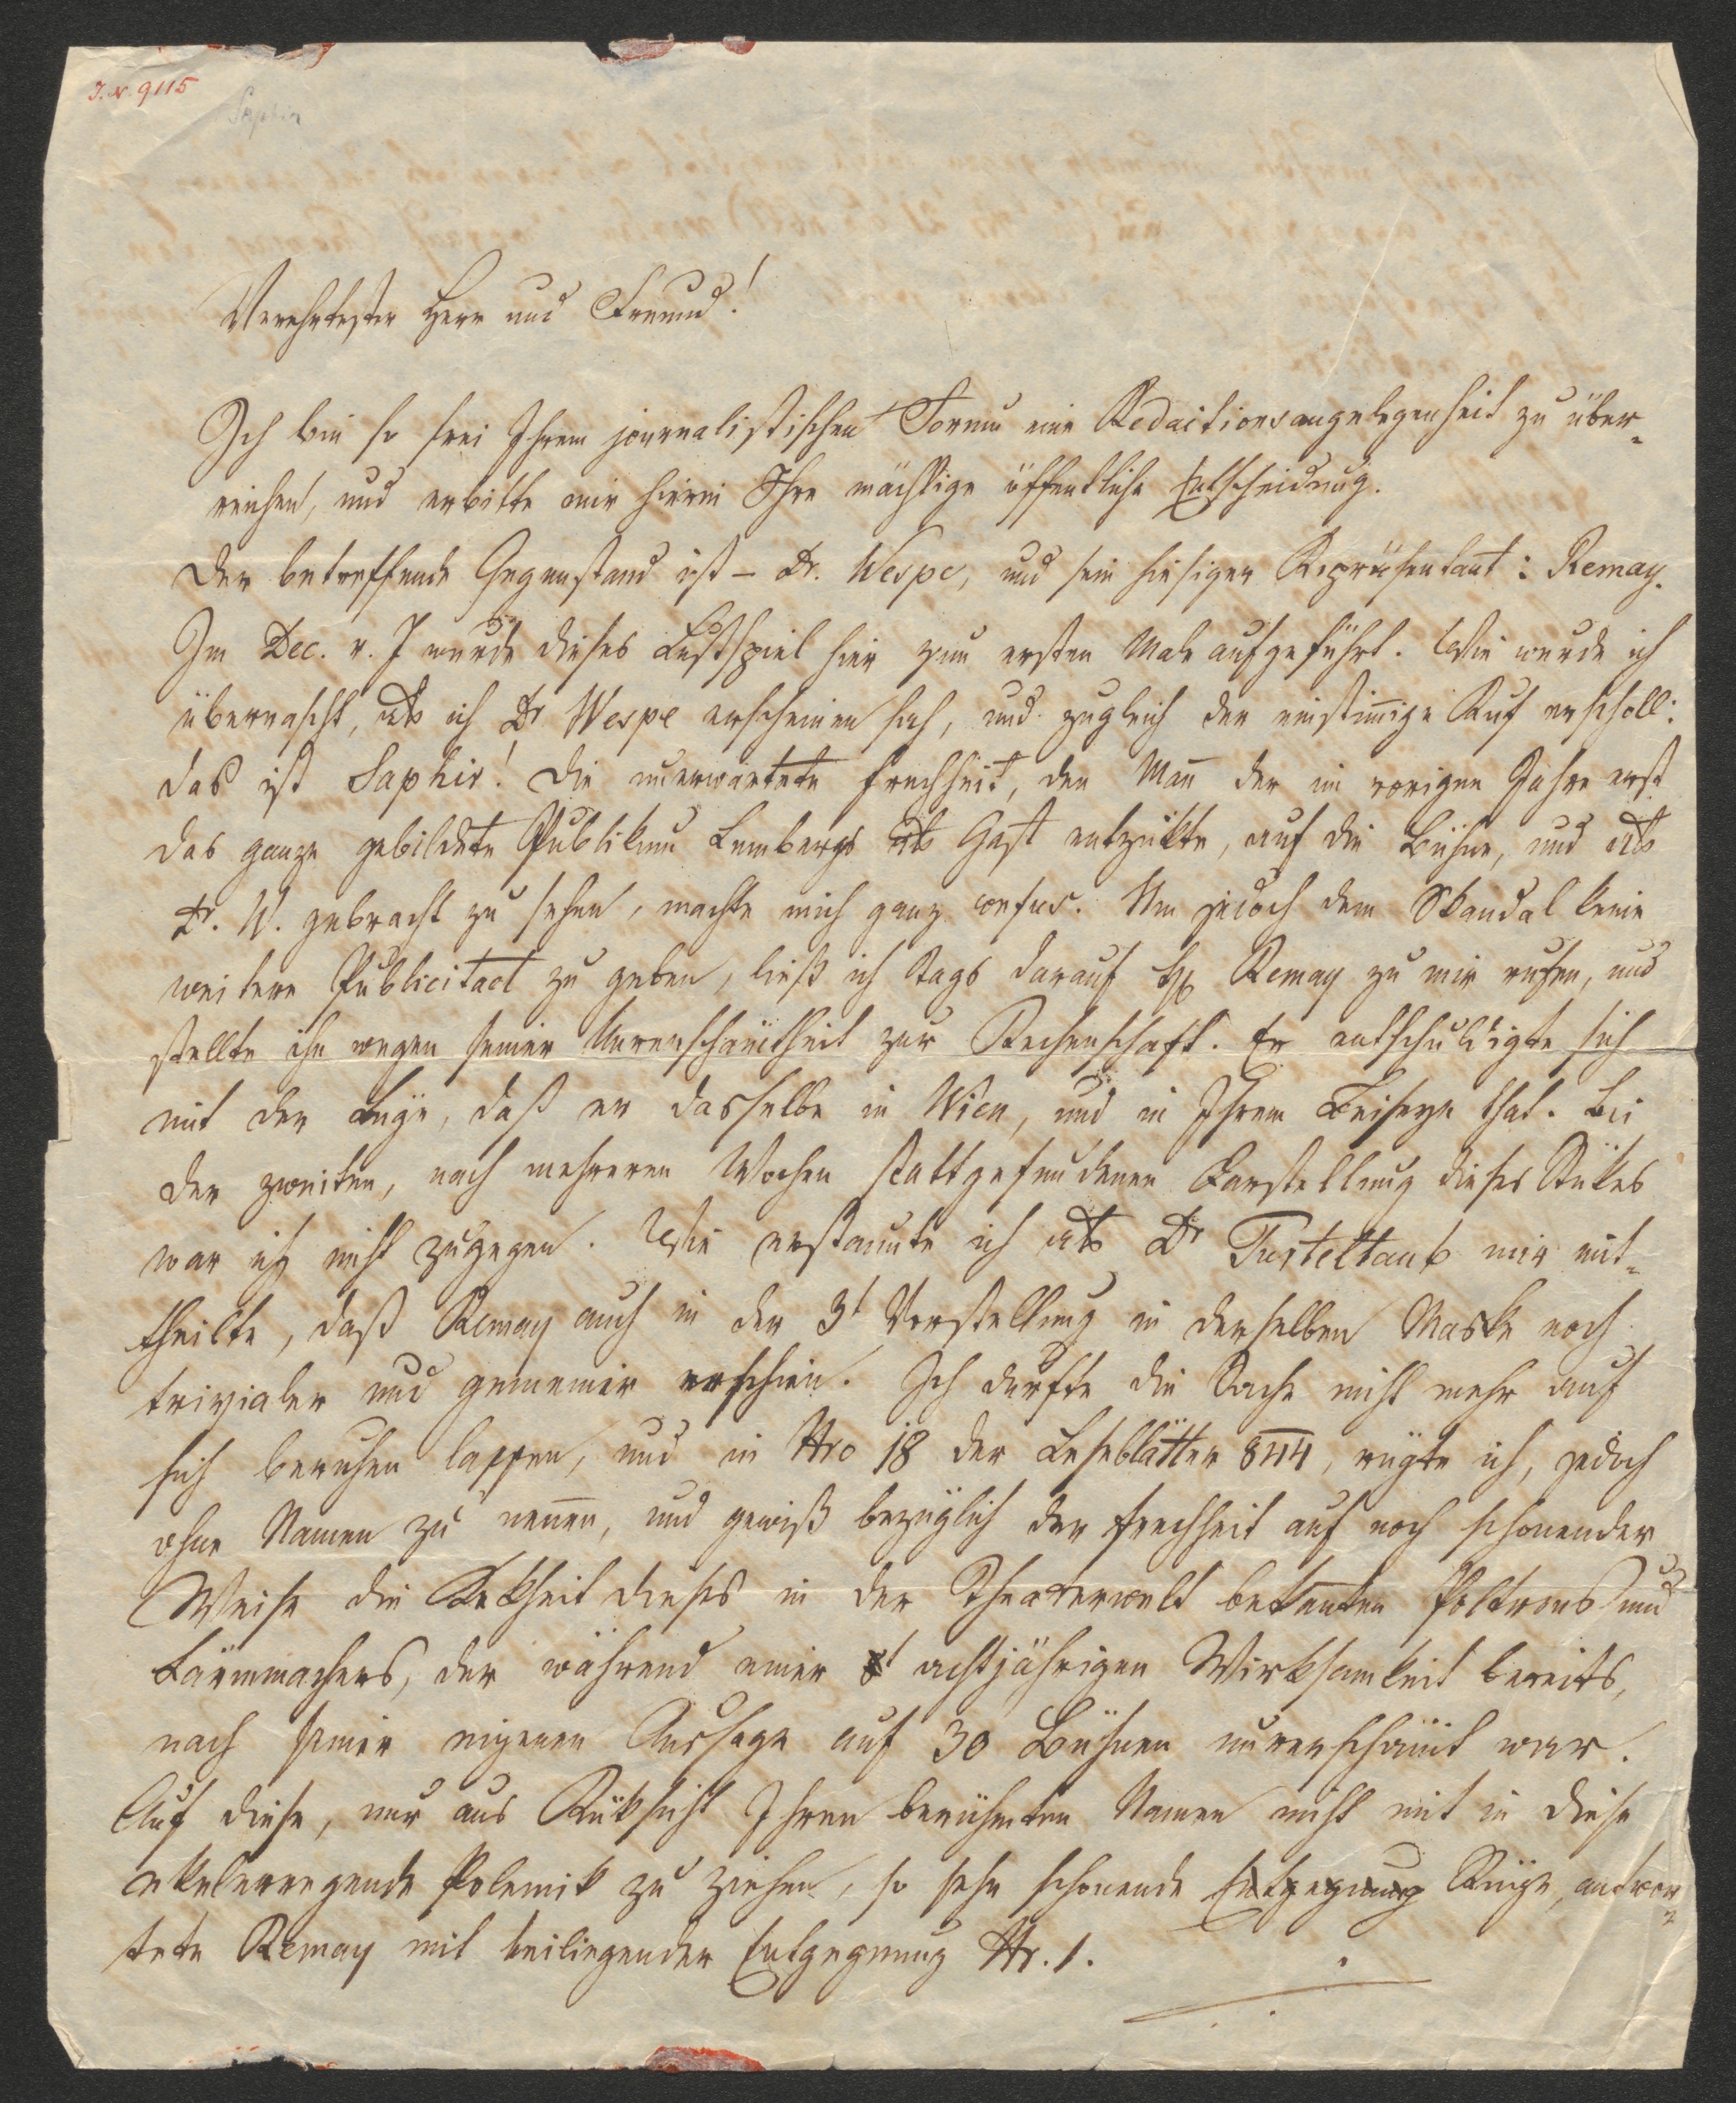 I. N. 9115
Saphir
Verehrtester Herr und Freund!
Ich bin so frei Ihrem journalistischen Forum eine Redactionsangelegenheit zu über-
reichen, und erbitte mir hierin Ihre mächtige öffentliche Entscheidung.
Der betreffende Gegenstand ist – Dr. Wespe, und sein hiesiger Repräsentant: Remay.
Im Dec. v. J wurde dieses Lustspiel hier zum ersten Male aufgeführt. Wie wurde ich
überrascht, als ich Dr Wespe erscheinen sah, und zugleich der einstim̄ige Ruf erscholl:
das ist Saphir! Die unerwartete Frechheit, den Man̄ der im vorigen Jahre erst
das ganze gebildete Publikum Lembergs als Gast entzükte, auf die Bühne, und als
Dr. W. gebracht zu sehen, machte mich ganz confus. Um jedoch dem Skandal keine
weitere Publicitaet zu geben, ließ ich Tags darauf H. Remay zu mir rufen, und
stellte ihn wegen seiner Unverschäm̄theit zur Rechenschaft. Er entschuldigte sich
mit der Lüge, daß er dasselbe in Wien, und in Ihrem Beiseyn that. Bei
der zweiten, nach mehreren Wochen stattgefundenen Darstellung dieses Stükes
war ich nicht zugegen. Wie erstaunte ich als Dr Turteltaub mir mit-
theilte, daß Remay auch in der 3t Vorstellung in derselben Maske noch
trivialer und gemeiner erschien. Ich durfte die Sache nicht mehr auf
sich beruhen lassen, und in Nro 18 der Leseblätter 844, rügte ich, jedoch
ohne Namen zu nen̄en, und gewiß bezüglich der Frechheit auf noch schonender
Weise die Kekheit dieses in der Theaterwelt bekan̄ten Poltrons und
Lärmmachers, der während einer achtjährigen Wirksamkeit bereits,
nach seiner eigenen Aussage auf 30 Bühnen unverschäm̄t war.
Auf diese, nur aus Rüksicht Ihren berühmten Namen nicht mit in diese
ekelerregende Polemik zu ziehen, so sehr schonende Entgegnung Rüge, antwor-
tete Remay mit beiliegender Entgegnung Nr. 1.